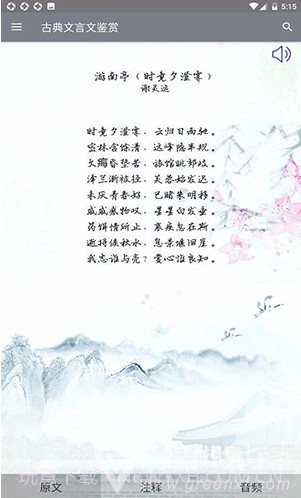 5:15
古典文言文鉴赏
游南亭（时竟夕澄霁）
谢灵运
时竟夕澄霁，云归日西驰。
密林含馀清，远峰隐半规。
久痗昏垫苦，旅馆眺郊歧。
泽兰渐被径，芙蓉始发迟。
未厌青春好，已睹朱明移。
戚戚感物叹，星星白发垂。
药饵情所止，衰疾忽在斯。
逝将候秋水，息景偃旧崖。
我志谁与亮？赏心惟良知。
原文 注释 音频